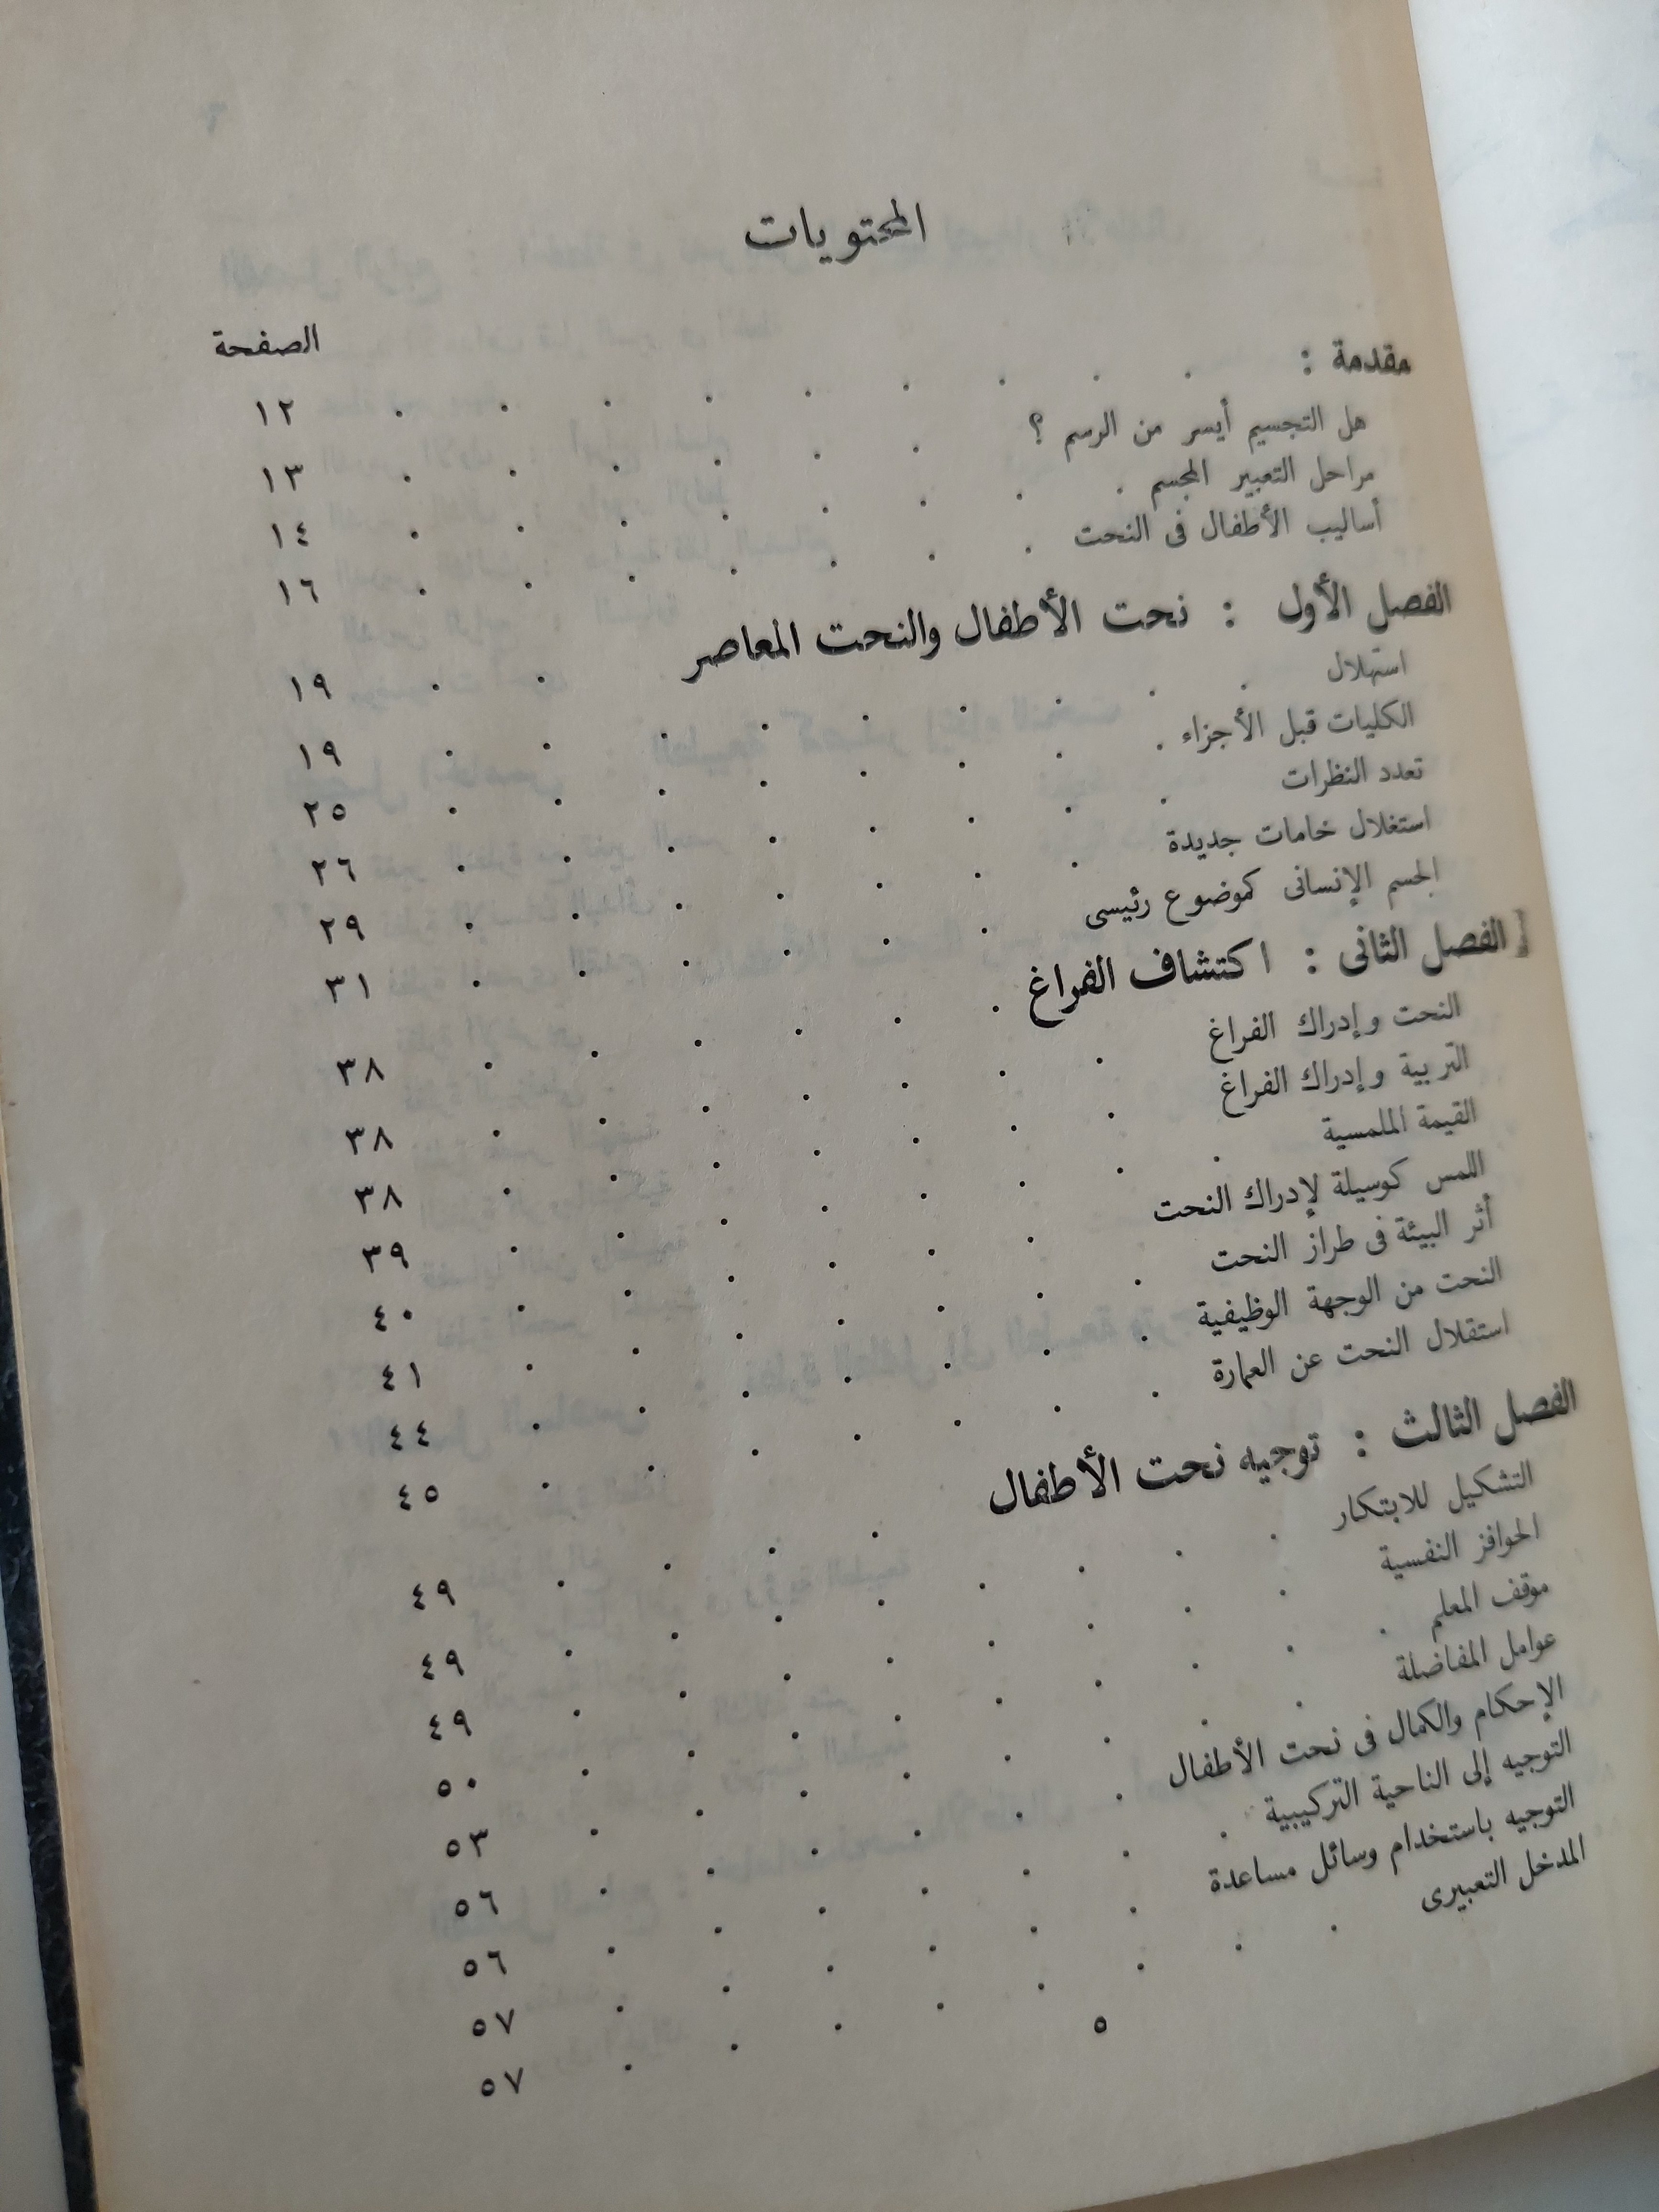 المحتويات
الصفحة
مقدمة : . . . . . . . . . ١٢
هل التجسيم أيسر من الرسم ؟ . . . . . . ١٣
مراحل التعبير المجسم . . . . . . . . ١٤
أساليب الأطفال فى النحت . . . . . . . ١٦
الفصل الأول : نحت الأطفال والنحت المعاصر . . ١٩
استهلال . . . . . . . . ١٩
الكليات قبل الأجزاء . . . . . . . . ٢٥
تعدد النظرات . . . . . . . . ٢٦
استغلال خامات جديدة . . . . . . . ٢٩
الجسم الإنسانى كموضوع رئيسى . . . . . . ٣١
الفصل الثانى : اكتشاف الفراغ . . . . . . ٣٨
النحت وإدراك الفراغ . . . . . . . ٣٨
التربية وإدراك الفراغ . . . . . . . ٣٨
القيمة الملمسية . . . . . . . . ٣٩
اللمس كوسيلة لإدراك النحت . . . . . . ٤٠
أثر البيئة فى طراز النحت . . . . . . . ٤١
النحت من الوجهة الوظيفية . . . . . . . ٤٤
استقلال النحت عن العمارة . . . . . . . ٤٥
الفصل الثالث : توجيه نحت الأطفال . . . . ٤٩
التشكيل للابتكار . . . . . . . . ٤٩
الحوافز النفسية . . . . . . . . ٤٩
موقف المعلم . . . . . . . . . ٥٠
عوامل المفاضلة . . . . . . . . ٥٣
الإحكام والكمال فى نحت الأطفال . . . . . . ٥٦
التوجيه إلى الناحية التركيبية . . . . . . . ٥٦
التوجيه باستخدام وسائل مساعدة . . . . . . ٥٧
المدخل التعبيرى . . . . . . . . ٥٧
٥